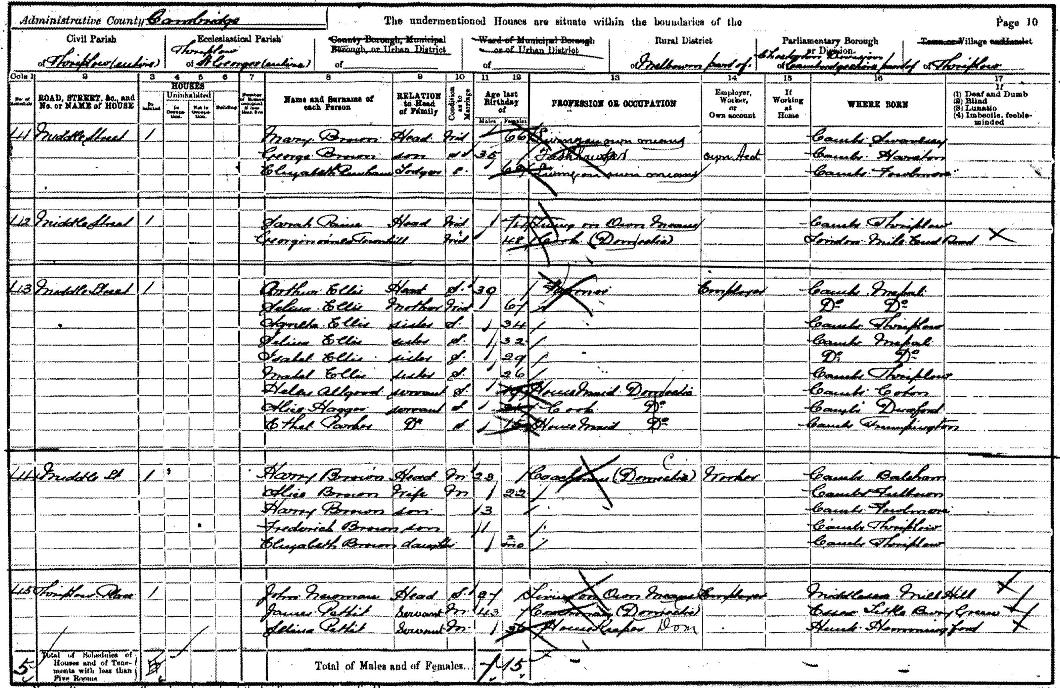 Administrative County Cambridge The undermentioned Houses are situate within the boundaries of the Page 10
Civil Parish Ecclesiastical Parish County Borough, Municipal Borough, or Urban District Ward of Municipal Borough or of Urban District Rural District Parliamentary Borough or Division Town or Village or Hamlet
of Thriplow (entire) of Thriplow St Georges (entire) of of of Melbourn part of of Chesterton Division Cambridgeshire part of of Thriplow
Cols 1 2 3 4 5 6 7 8 9 10 11 12 13 14 15 16 17
No. of Schedule ROAD, STREET, &c., and No. or NAME of HOUSE HOUSES Inhabited Uninhabited In Occupation Not in Occupation Building Name and Surname of each Person RELATION to Head of Family Condition as to Marriage Age last Birthday of Males Females PROFESSION OR OCCUPATION Employer, Worker, or Own account If Working at Home WHERE BORN If (1) Deaf and Dumb (2) Blind (3) Lunatic (4) Imbecile, feeble-minded
41 Middle Street 1 Mary Brown Head Wid 66 Living on own means Cambs Swavesey
George Brown son S 35 own Acct Cambs Harston
Elizabeth Lodger Living on own means Cambs Fowlmere
42 Middle Street 1 Sarah Head Wid Living on Own Means Cambs Thriplow
Georgina Wid 48 Cook (Domestic) London Mile End Road
43 Middle Street 1 Arthur Ellis Head S 30 Farmer Employer Cambs Mepal
Selina Ellis Mother Wid 67 Do Do
Ellis sister S 34 Cambs Thriplow
Selina Ellis sister S 32 Cambs Mepal
Isabel Ellis sister S 29 Do Do
Mabel Ellis sister S 26 Cambs Thriplow
Helen Allgood servant S 19 House Maid Domestic Cambs Coton
Alice Hagger servant S Cook Do Cambs Duxford
Ethel Parker Do S House Maid Do Cambs Trumpington
44 Middle St 1 Harry Brown Head M 23 Coachman (Domestic) Worker Cambs Balsham
Alice Brown Wife M 22 Cambs Fulbourn
Harry Brown son 3 Cambs Fowlmere
Frederick Brown son 1 Cambs Thriplow
Elizabeth Brown daughter 2 mo Cambs Thriplow
45 Thriplow Place 1 John Newman Head S Living on Own Means Employer Middlesex Mill Hill
James Pettit Servant M 43 Coachman (Domestic) Essex Little Bury Green
Selina Pettit Servant M House Keeper Dom Hunts Hemmingford
5 Total of Schedules of Houses and of Tenements with less than Five Rooms 5 Total of Males and of Females... 7 15